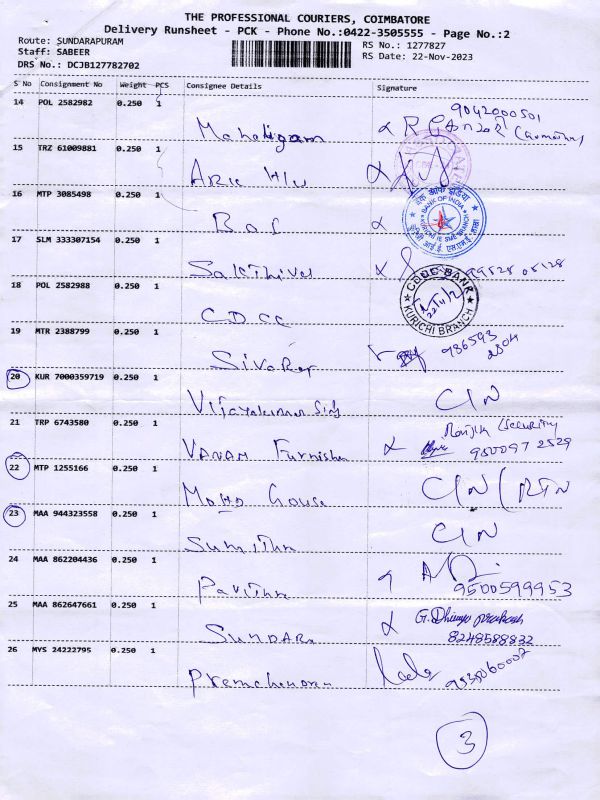 THE PROFESSIONAL COURIERS, COIMBATORE
Delivery Runsheet - PCK - Phone No.:0422-3505555 - Page No.:2
Route: SUNDARAPURAM
Staff: SABEER
DRS No.: DCJB127782702
RS No.: 1277827
RS Date: 22-Nov-2023
S No Consignment No Weight PCS Consignee Details Signature
14 POL 2582982 0.250 1
Mahaligam 9042000501
15 TRZ 61009881 0.250 1
16 MTP 3085498 0.250 1
BOI
बैंक ऑफ इंडिया
BANK OF INDIA
KURICHI IE SME BRANCH
17 SLM 333307154 0.250 1
Sakthivel
18 POL 2582988 0.250 1
CDCC
CDCC BANK
KURICHI BRANCH
19 MTR 2388799 0.250 1
Sivaraj 986593 2804
20 KUR 7000359719 0.250 1
Vijayakumar Sing C/N
21 TRP 6743580 0.250 1
VANAM Furnisher Security
950097 2529
22 MTP 1255166 0.250 1
MOHD Gouse C/N (RTN
23 MAA 944323558 0.250 1
Sumithra C/N
24 MAA 862204436 0.250 1
Pavithra 9500599953
25 MAA 862647661 0.250 1
SUNDARA G. Dhivya prakash
8248588832
26 MYS 24222795 0.250 1
Premchandran
3